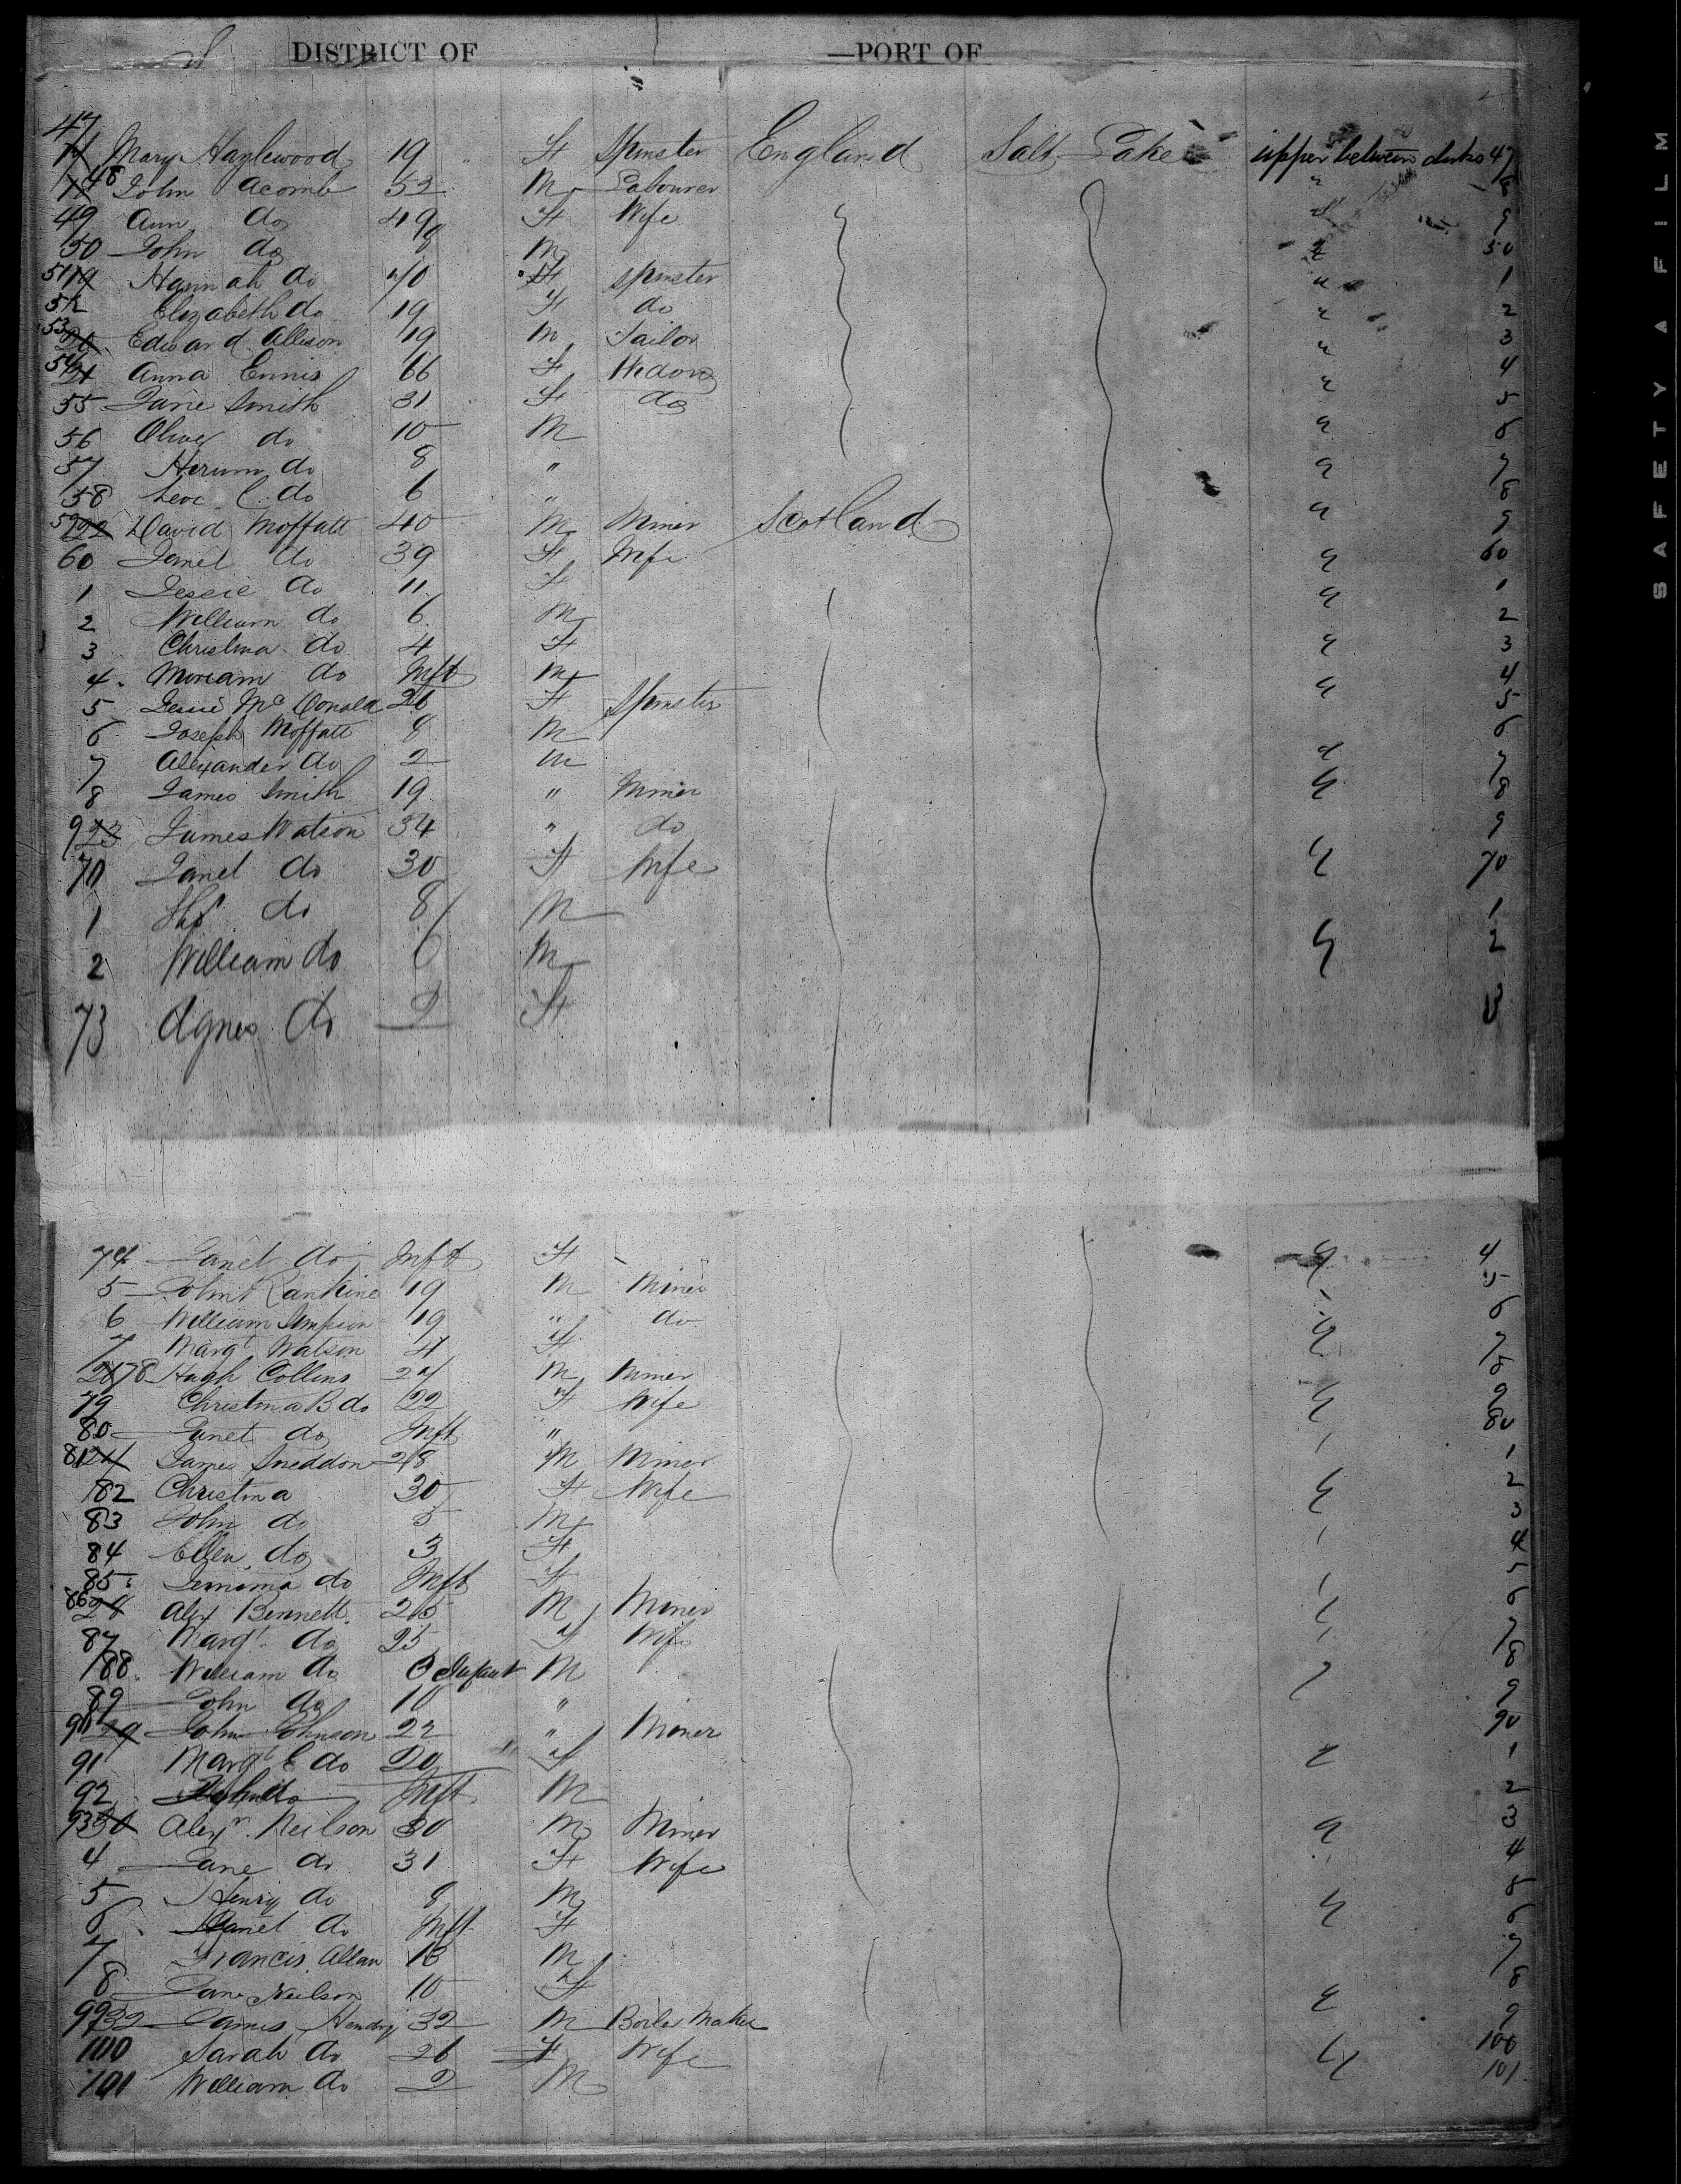 DISTRICT OF —PORT OF
47 Mary Hazlewood 19 " F Spinster England Salt Lake upper between decks 47
48 John Acomb 52 M Labourer " 8
49 Ann do 49 F Wife " 9
50 John do 8 M " 50
51 19 Hannah do F Spinster " 1
52 Elizabeth do 19 F do " 2
53 20 Edward Allison 19 M Tailor " 3
54 21 Anna Ennis 66 F Widow " 4
55 Jane Smith 31 F do " 5
56 Oliver do 10 M " 6
57 Hirum do 8 " " 7
58 do 6 " " 8
59 22 David Moffatt 40 M Miner Scotland " 9
60 Janet do 39 F Wife " 60
1 Jessie do 11 F " 1
2 William do 6 M 2
3 Christina do 4 F " 3
4 Miriam do Inft M 4
5 Jessie McDonald 26 F Spinster " 5
6 Joseph Moffatt 8 M 6
7 Alexander do 2 M " 7
8 James Smith 19 " Miner " 8
9 23 James Watson 34 " do 9
70 Janet do 30 F Wife " 70
1 do 8 M 1
2 William do 6 M " 2
73 Agnes do 2 F 3
74 Janet do Inft F " 4
5 John Rankine 19 M Miner 5
6 William Simpson 19 " do 6
7 Margt Watson 4 F " 7
78 Hugh Collins 24 M Miner 8
79 Christina B do 22 F Wife " 9
80 Janet do Inft " 80
81 24 James Sneddon 28 M Miner 1
82 Christina 30 F Wife " 2
83 John do 5 M 3
84 Ellen do 3 F 4
85 Jemima do Inft F 5
86 28 Alex Bennett 25 M Miner 6
87 Margt do 25 F Wife 7
88 William do Infant M 8
89 John do 10 " 9
90 29 John Johnson 22 " Miner 90
91 Margt E do 20 F " 1
92 do Inft M 2
93 30 Alexr Neilson 30 M Miner " 3
4 Jane do 31 F Wife 4
5 Henry do 8 M 5
6 Janet do Inft F " 6
7 Francis Allan 13 M 7
8 Jane Neilson 10 F 8
99 32 James Hendry 32 M Boiler Maker " 9
100 Sarah do 26 F Wife 100
101 William do 2 M " 101
SAFETY A FILM